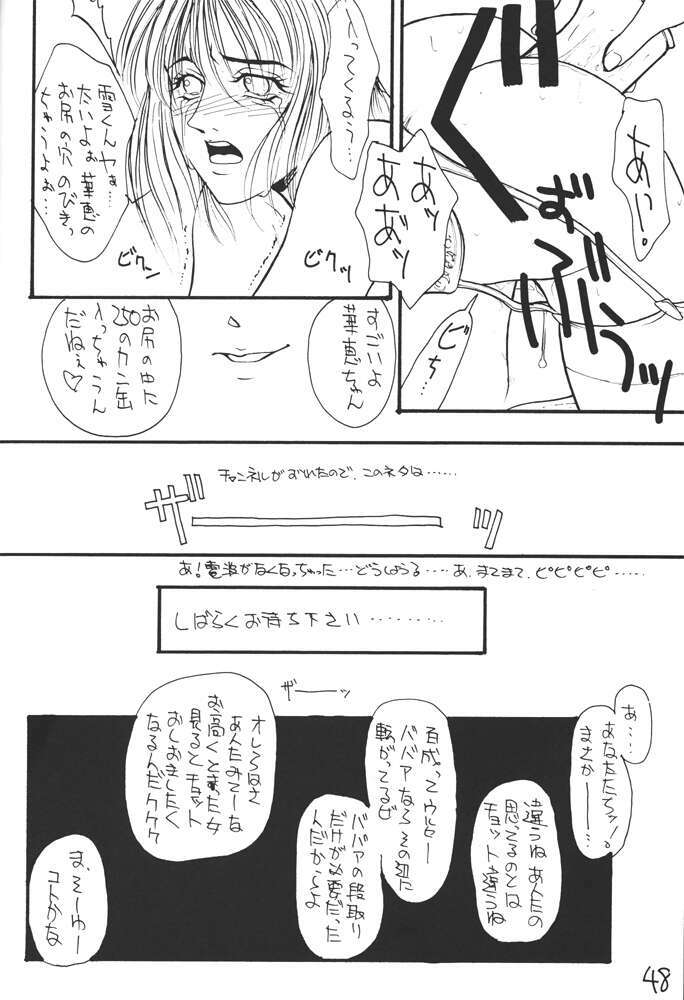 あッ。
ず
プッ
あッ
あぁッ
ビち…
入ってくるう…
雪くんヤぁ…
たいよぉ華恵の
お尻の穴のびきっ
ちゃうよぉ…
ビクッ
ビクン
すごいよ
華恵ちゃん
お尻の中に
250のカン缶
入っちゃうん
だねぇ♡
チャンネルがずれたので、このネタは……
ザーーッ
あ!電波がなくなっちゃった…どうしようる……あ、まてまて、ピピピピ……
しばらくお待ち下さい………
ザーーッ
あ…
あなたたちッ!
まさかーー…
違うねあんたの
思ってるのとは
チョット違うね
ババアならその辺に
転がってるぜ
ババアの段取り
だけが必要だった
んだからよ
オレらはさ
あんたみてーな
お高くとまった女
見るとチョット
おしおきしたく
なるんだククク
ま、そーゆー
コトかな
48